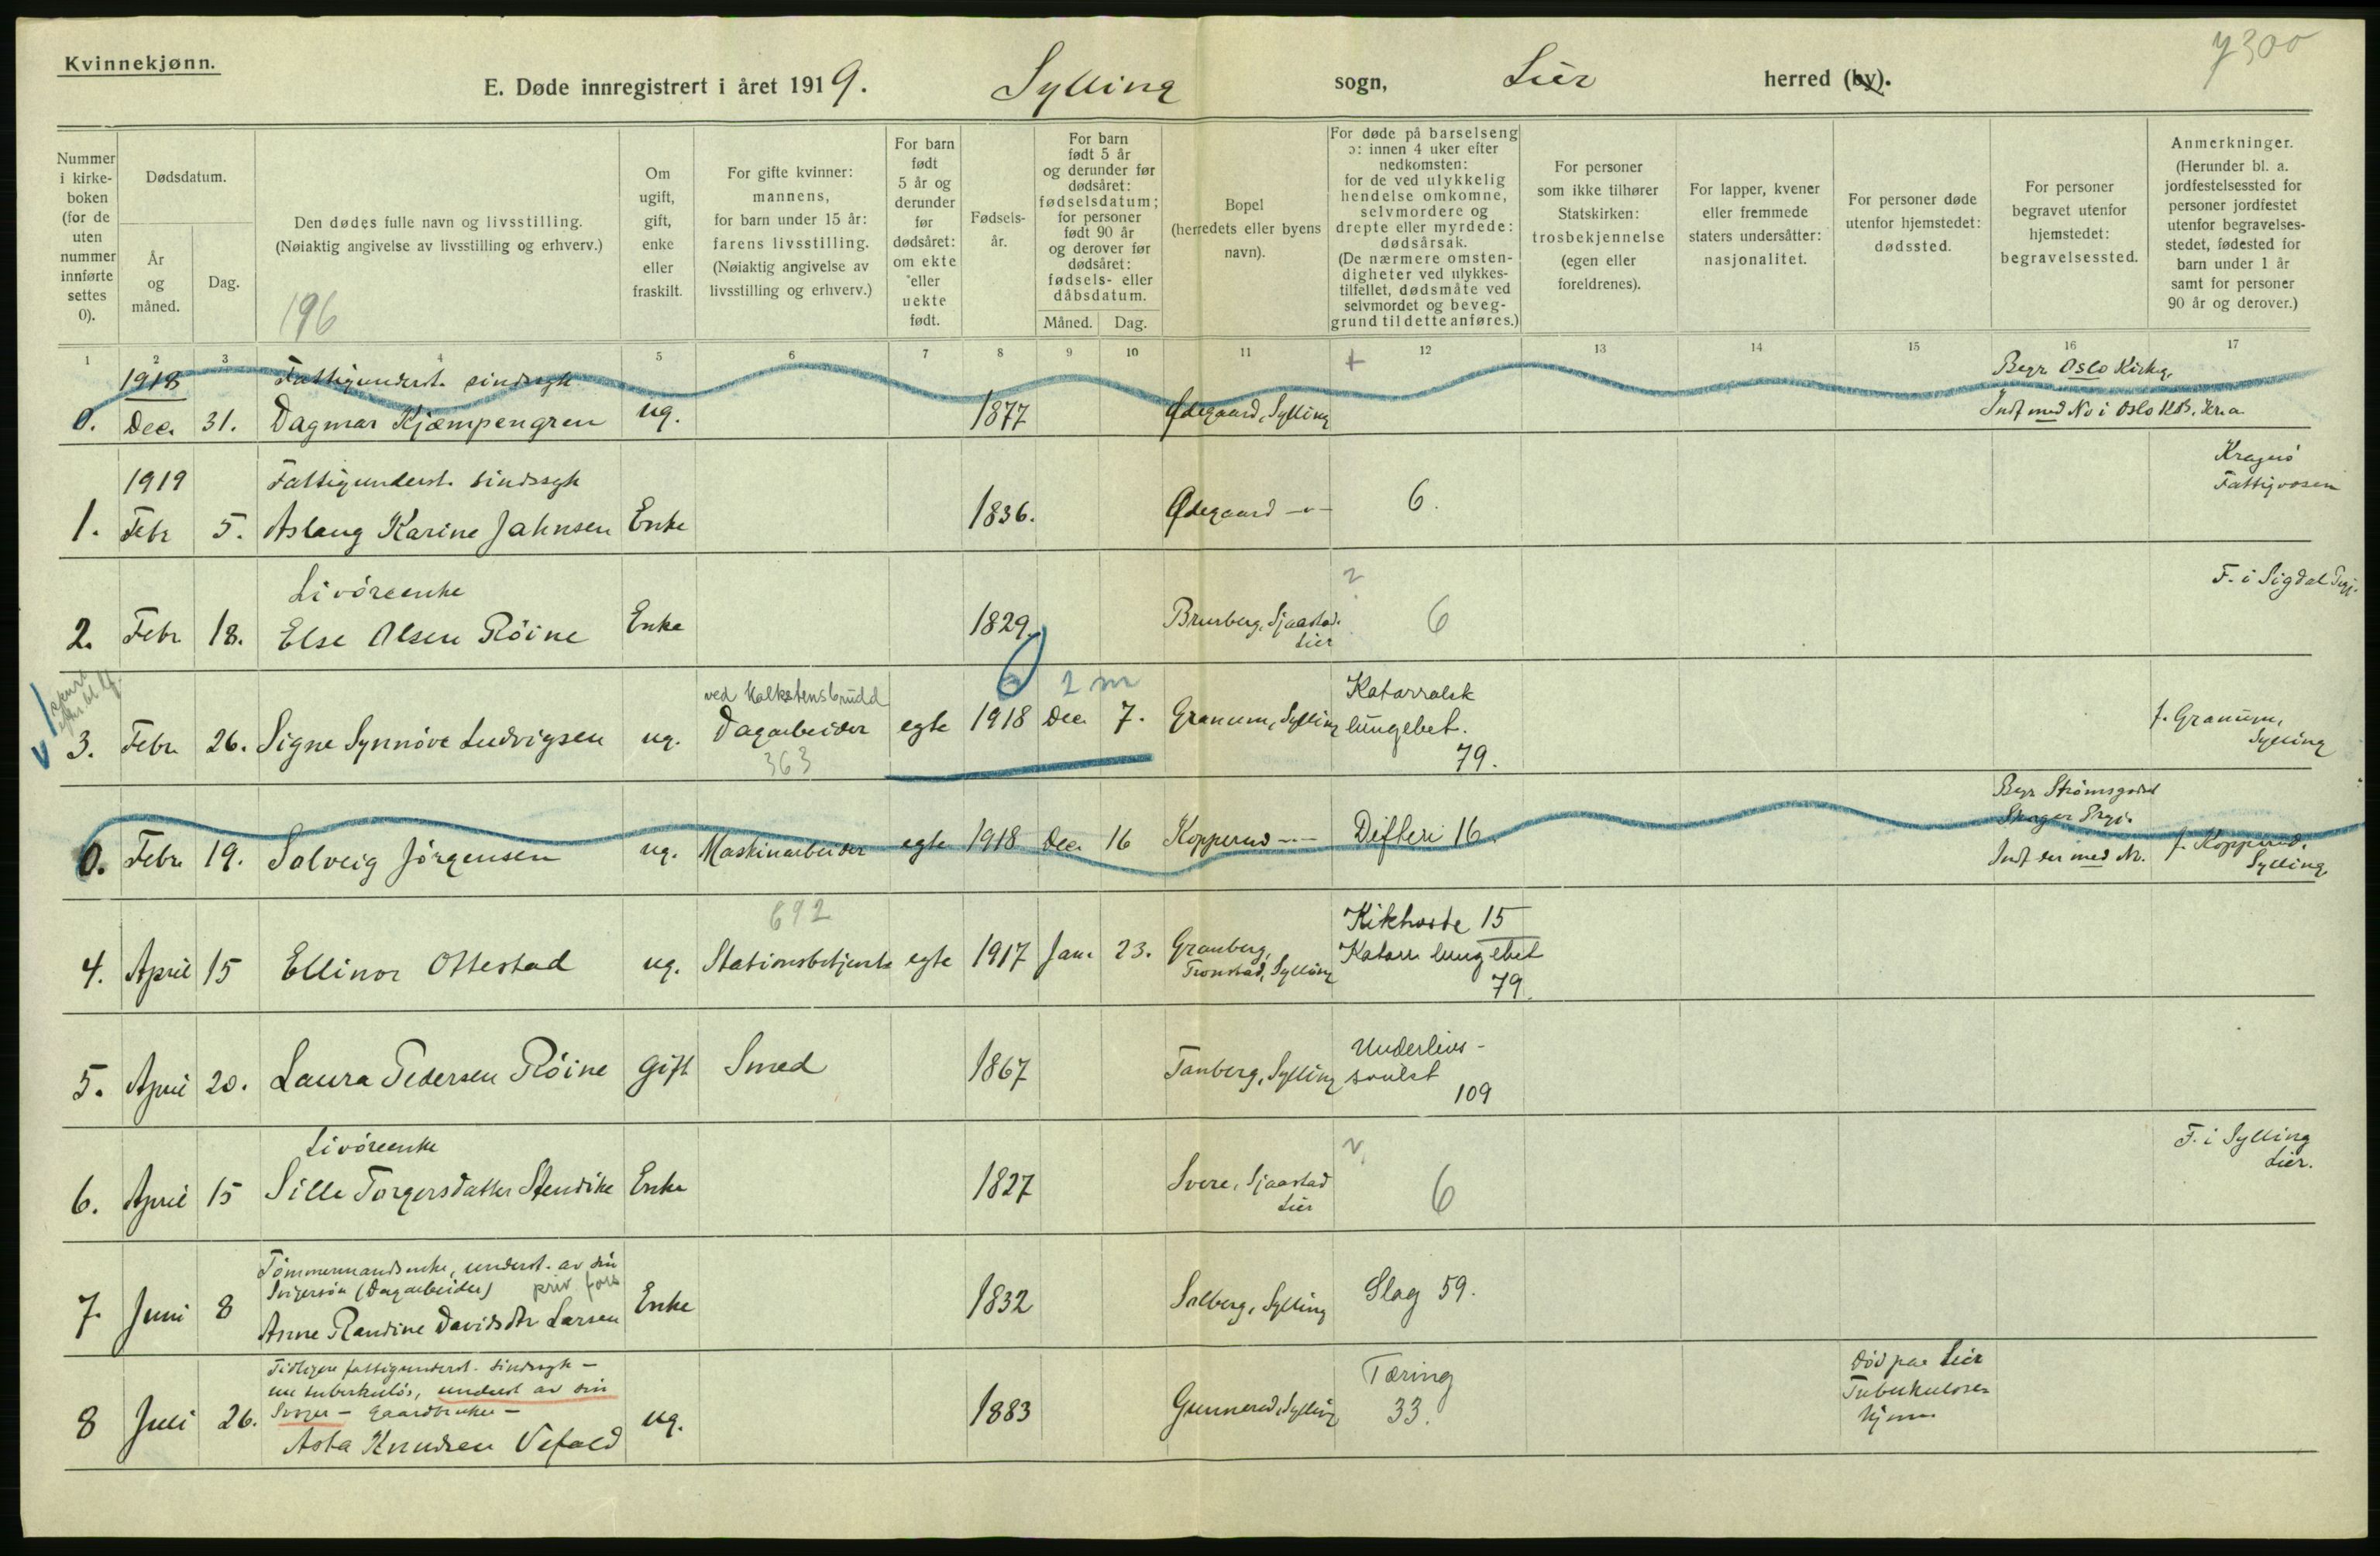 Kvinnekjønn.
7300
E. Døde innregistrert i året 1919. Sylling sogn, Lier herred (by).
Nummer i kirkeboken (for de uten nummer innførte settes 0).
Dødsdatum.
År og måned.
Dag.
Den dødes fulle navn og livsstilling.
(Nøiaktig angivelse av livsstilling og erhverv.)
196
Om ugift, gift, enke eller fraskilt.
For gifte kvinner: mannens, for barn under 15 år: farens livsstilling.
(Nøiaktig angivelse av livsstilling og erhverv.)
For barn født 5 år og derunder før dødsåret: om ekte eller uekte født.
Fødselsår.
For barn født 5 år og derunder før dødsåret: fødselsdatum; for personer født 90 år og derover før dødsåret: fødsels- eller dåbsdatum.
Måned. Dag.
Bopel (herredets eller byens navn).
For døde på barselseng ɔ: innen 4 uker efter nedkomsten: for de ved ulykkelig hendelse omkomne, selvmordere og drepte eller myrdede: dødsårsak.
(De nærmere omstendigheter ved ulykkestilfellet, dødsmåte ved selvmordet og beveggrund til dette anføres.)
For personer som ikke tilhører Statskirken: trosbekjennelse (egen eller foreldrenes).
For lapper, kvener eller fremmede staters undersåtter: nasjonalitet.
For personer døde utenfor hjemstedet: dødssted.
For personer begravet utenfor hjemstedet: begravelsessted.
Anmerkninger.
(Herunder bl. a. jordfestelsessted for personer jordfestet utenfor begravelsesstedet, fødested for barn under 1 år samt for personer 90 år og derover.)
1 2 3 4 5 6 7 8 9 10 11 12 13 14 15 16 17
1918 Fattigunderst. sindssyk + Begr Oslo Kirkeg.
0. Dec. 31. Dagmar Kjæmpengren ug. 1877 Ødegaard, Sylling Indf med No i Oslo KB. Kr.a
1919 Fattigunderst. sindssyk Kragerö Fattigvæsen
1. Febr 5. Aslaug Karine Jahnsen Enke 1836. Ødegaard -"- 6.
Livöreenke 2 F. i Sigdal Prgj.
2. Febr 18. Else Olsen Röine Enke 1829. Brurberg, Sjaastad. Lier 6
ved Kalkstensbrudd 2 m Katarralsk
3. Febr. 26. Signe Synnöve Ludvigsen ug. Dagarbeider egte 1918 Dec. 7. Granum, Sylling lungebet. f. Granum, Sylling
363 79.
Begr Strömsgodset
0. Febr 19. Solveig Jörgensen ug. Maskinarbeider egte 1918 Dec. 16 Kopperud -"- Difteri 16. Indf der med Nr. f. Kopperud. Sylling.
692 Kikhoste 15
4. April 15 Ellinor Ottestad ug. Stationsbetjent egte 1917 Jan. 23. Granberg, Tronstad, Sylling Katarr lungebet
79.
Underlivs-
5. April 20. Laura Pedersen Röine Gift Smed 1867 Tanberg, Sylling svulst
109
Livöreenke F. i Sylling Lier.
6. April 15 Sille Torgersdatter Stendike Enke 1827 Svere, Sjaastad Lier 6
Tömmermandsenke, underst. av sin
Svigersön (Dagarbeider) priv. fors
7. Juni 8 Anne Randine Davidsdtr Larsen Enke 1832 Solberg, Sylling Slag 59.
Tidligere fattigunderst. sindssyk -
nu tuberkulös, underst av sin
Svoger - Gaardbruker -
8 Juli 26. Asta Knudsen Vefald ug. 1883 Gunnerud, Sylling Tæring 33. Död paa Lier Tuberkulosehjem